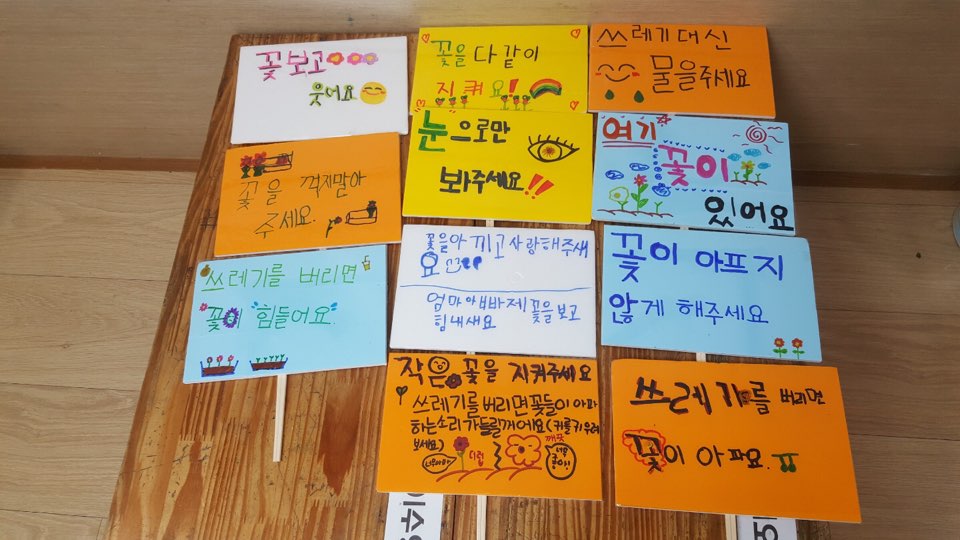 꽃보고
웃어요
꽃을 다 같이
지켜요!
쓰레기대신
물을주세요
꽃을 꺽지말아
주세요.
눈으로만
봐주세요!!
여기
꽃이
있어요
쓰레기를 버리면
꽃이 힘들어요.
꽃을아끼고사랑해주새
요
엄마아빠제꽃을보고
힘내새요
꽃이 아프지
않게 해주세요
작은 꽃을 지켜주세요
쓰레기를버리면꽃들이아파
하는소리가들릴꺼에요(귀를키우려
보세요)
쓰레기를 버리면
꽃이 아파요.